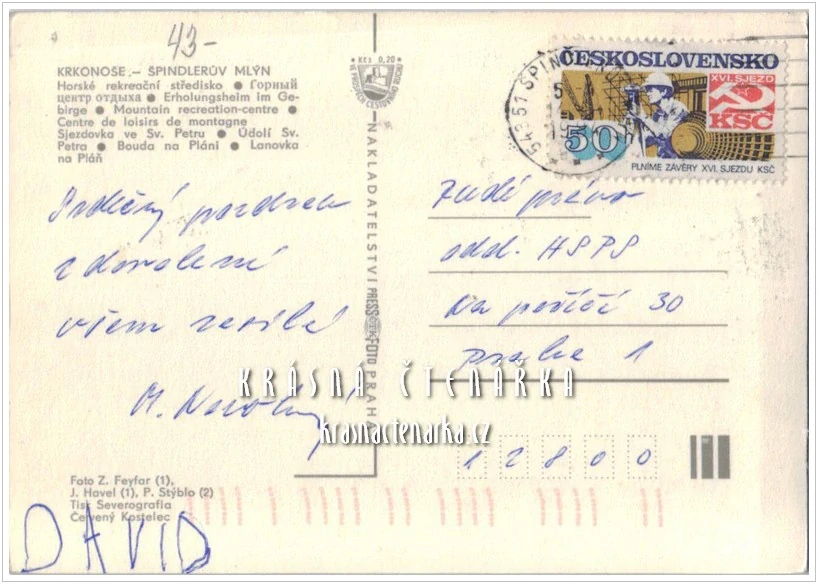 43-
KRKONOŠE – ŠPINDLERŮV MLÝN
Horské rekreační středisko ● Горный
центр отдыха ● Erholungsheim im Ge-
birge ● Mountain recreation-centre ●
Centre de loisirs de montagne
Sjezdovka ve Sv. Petru ● Údolí Sv.
Petra ● Bouda na Pláni ● Lanovka
na Pláň
Kčs 0,20
ČESKOSLOVENSKO
XVI. SJEZD
KSČ
50
PLNÍME ZÁVĚRY XVI. SJEZDU KSČ
543 51 ŠPIN
NAKLADATELSTVÍ PRESSFOTO PRAHA
Srdečný pozdrav
z dovolené
všem zasílá
Rudé právo
odd. HSPS
Na poříčí 30
Praha 1
12800
KRÁSNÁ ČTENÁŘKA
krasnactenarka.cz
Foto Z. Feyfar (1),
J. Havel (1), P. Stýblo (2)
Tisk Severografia
Červený Kostelec
DAVID